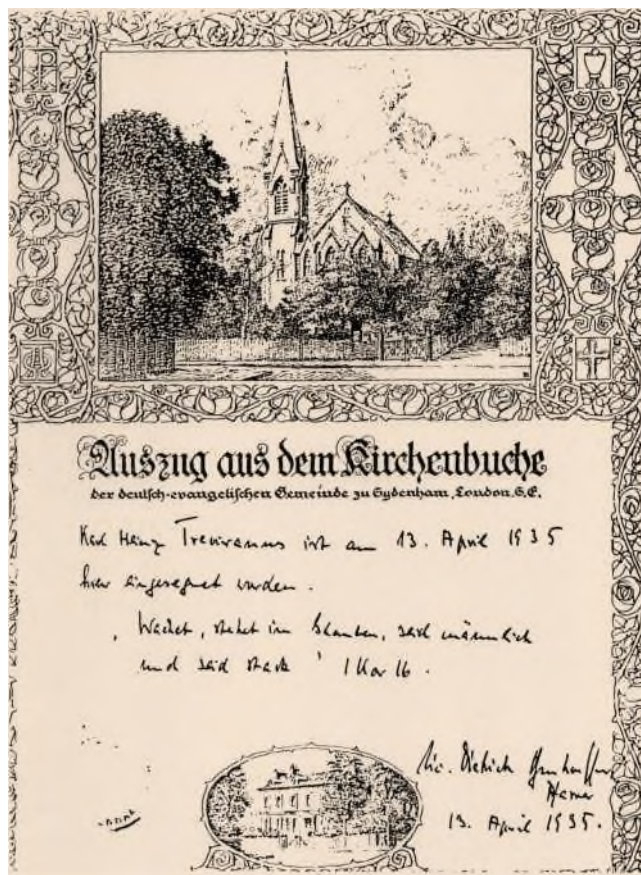 Auszug aus dem Kirchenbuche
der deutsch-evangelischen Gemeinde zu Sydenham, London, S.E.
Karl Heinz Treviranus ist am 13. April 1935
hier eingesegnet worden.
„ Wachet, stehet im Glauben, seid männlich
und seid stark " 1 Kor 16.
Lic. Dietrich Bonhoeffer
Pfarrer
13. April 1935.